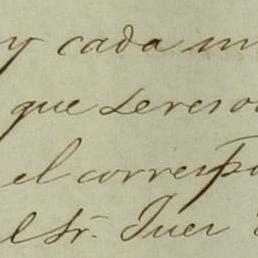 y cada un
que se reso
el correspo
el Sr. Juez